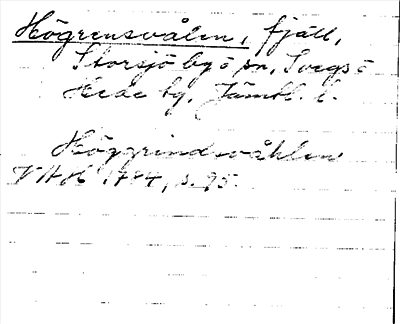 Högrensvålen, fjäll,
Storsjö by o sn, Svegs o
Hede tg, Jämtl. l.
Höggrindsvåhlen
VAH 1744, s. 95.